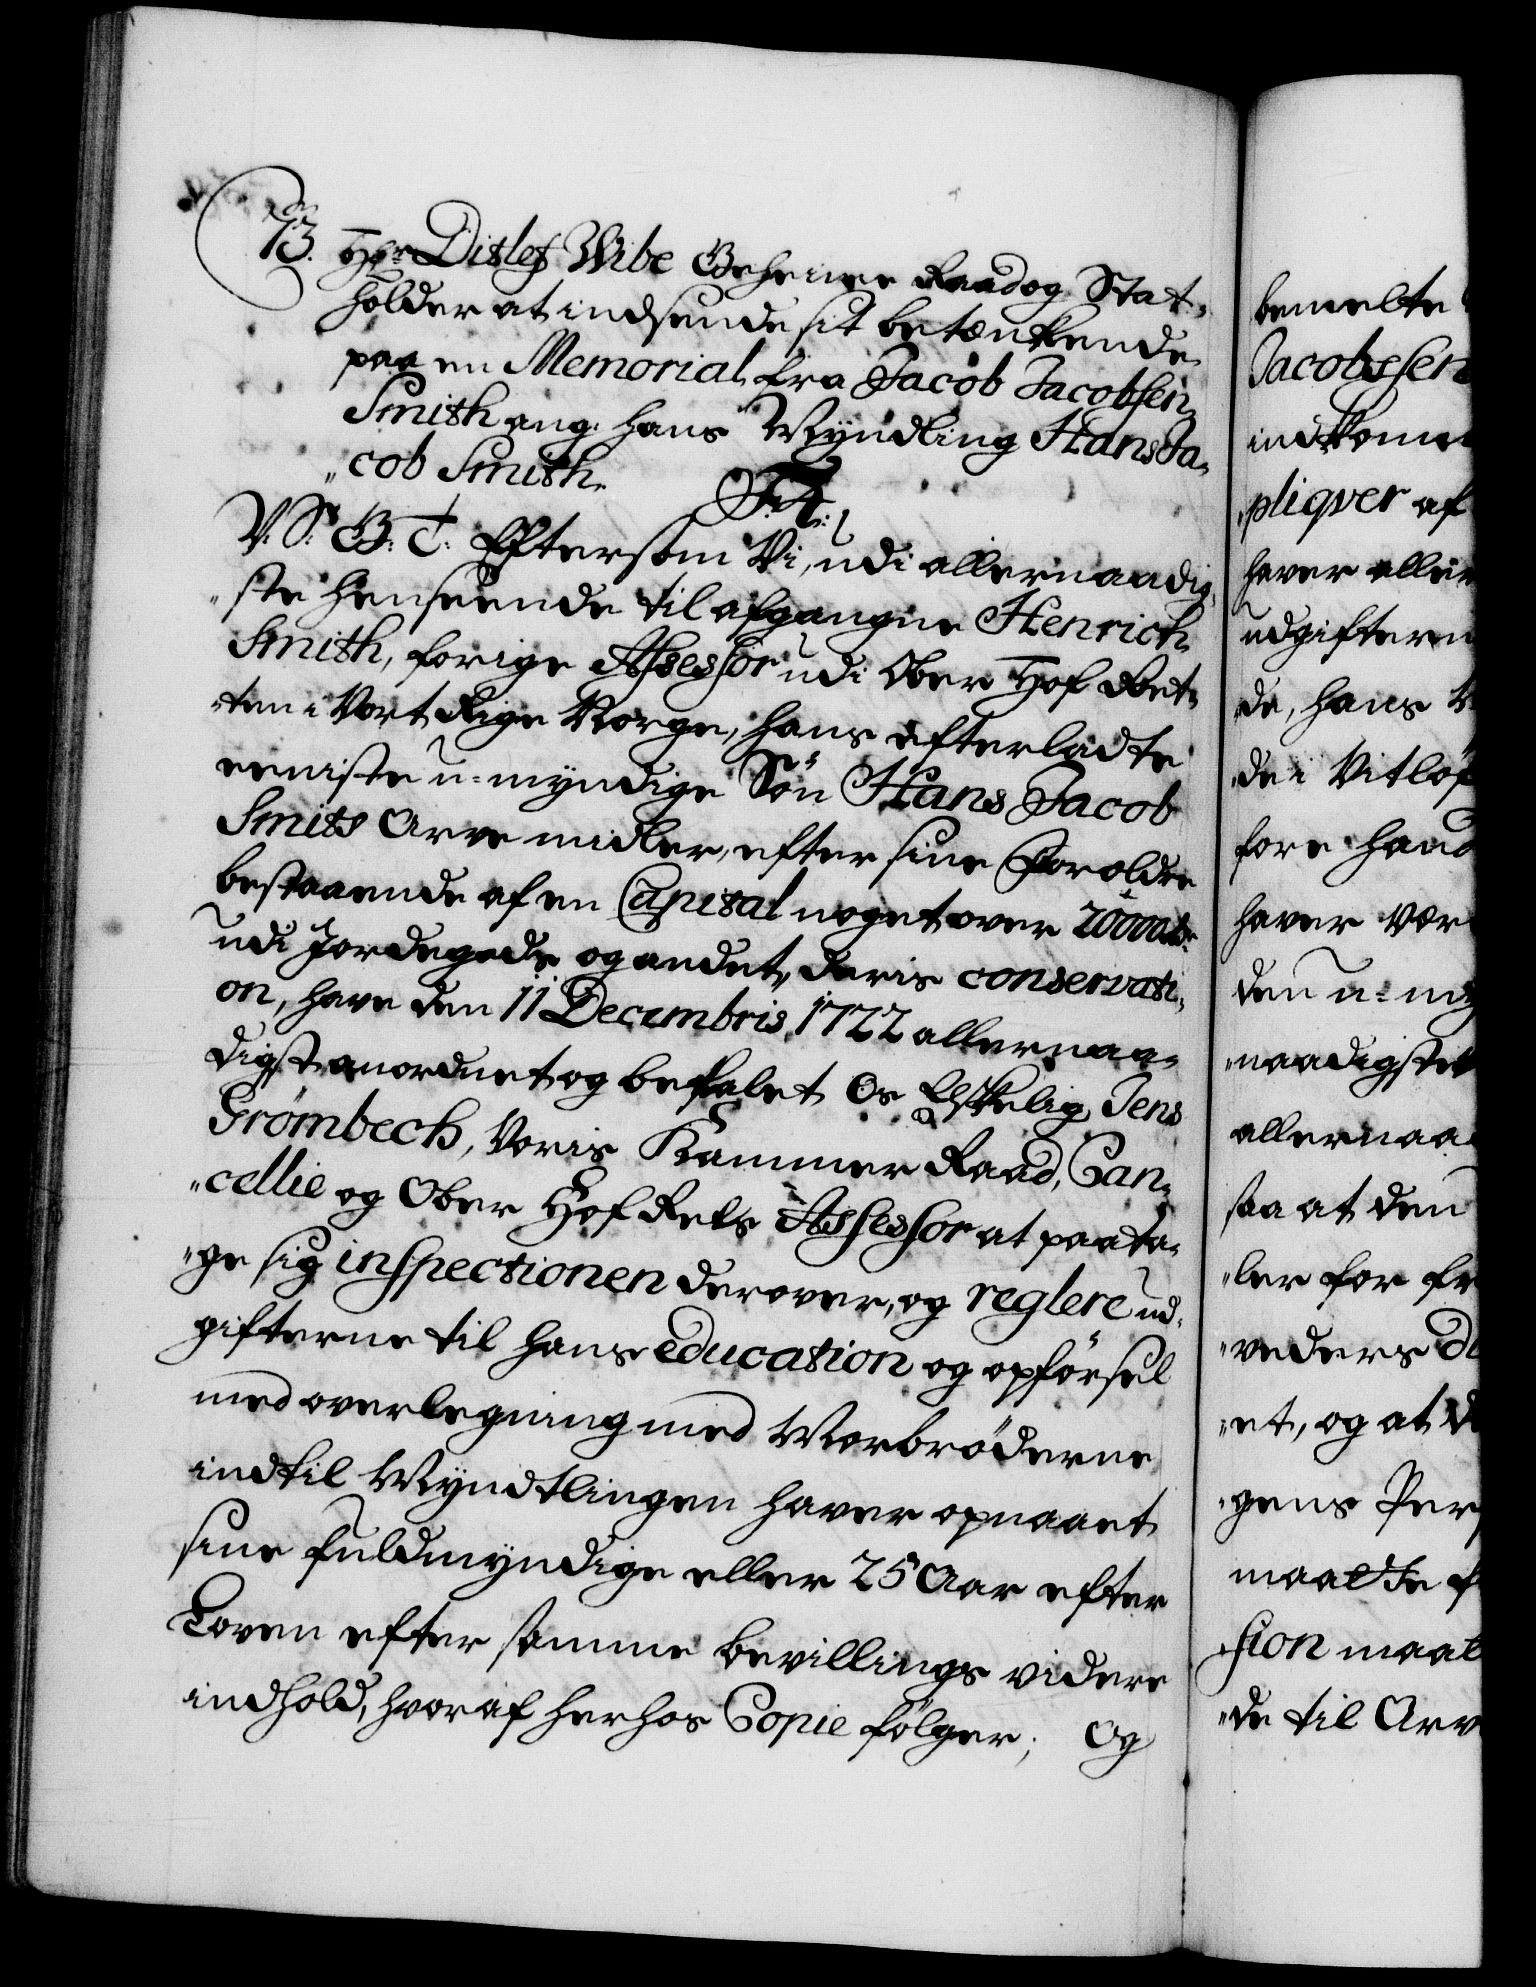 73. Hr Ditlef Wibe Geheime Raad og Stat-
holder at indsende sit betænkende
paa en Memorial fra Jacob Jacobsen
Smith ang: hans Myndling Hans Ja-
cob Smith.
V. S. G. T. Eftersom Vi, udi allernaadig-
ste henseende til afgangne Henrich
Smith, forige Assessor udi Ober Hof Ret-
ten i Vort Rige Norge, hans efterladte
eeniste u-myndige Sön Hans Jacob
Smits Arve midler, efter sine Foroldre
bestaaende af en Capital noget over 20000 rdr
udi Jordegods og andet, deris conservati-
on, have den 11 Decembris 1722 allernaa-
digst anordnet og befalet Os Elskelig Jens
Grømbech, Voris Kammer Raad, Can-
cellie og Ober Hof Rets Assessor at paata-
ge sig inspectionen derover, og reglere ud-
gifterne til hans education og opförsel
med overlegning med Morbröderne
indtil Myndtlingen haver opnaaet
sine fuldmyndige eller 25 Aar efter
Loven efter samme bevillings videre
indhold, hvoraf herhos Copie fölger; Og
bemelte
Jacobssen
indkomm
pliqver af
haver aller
udgifterne
de, hans
de i Vitlöf
fore hand
haver vær
den u-my
naadigste
allernaa
saa at den
ler for fr
veders
et, og at d
gens Per
maatte f
sion maat
de til Arv